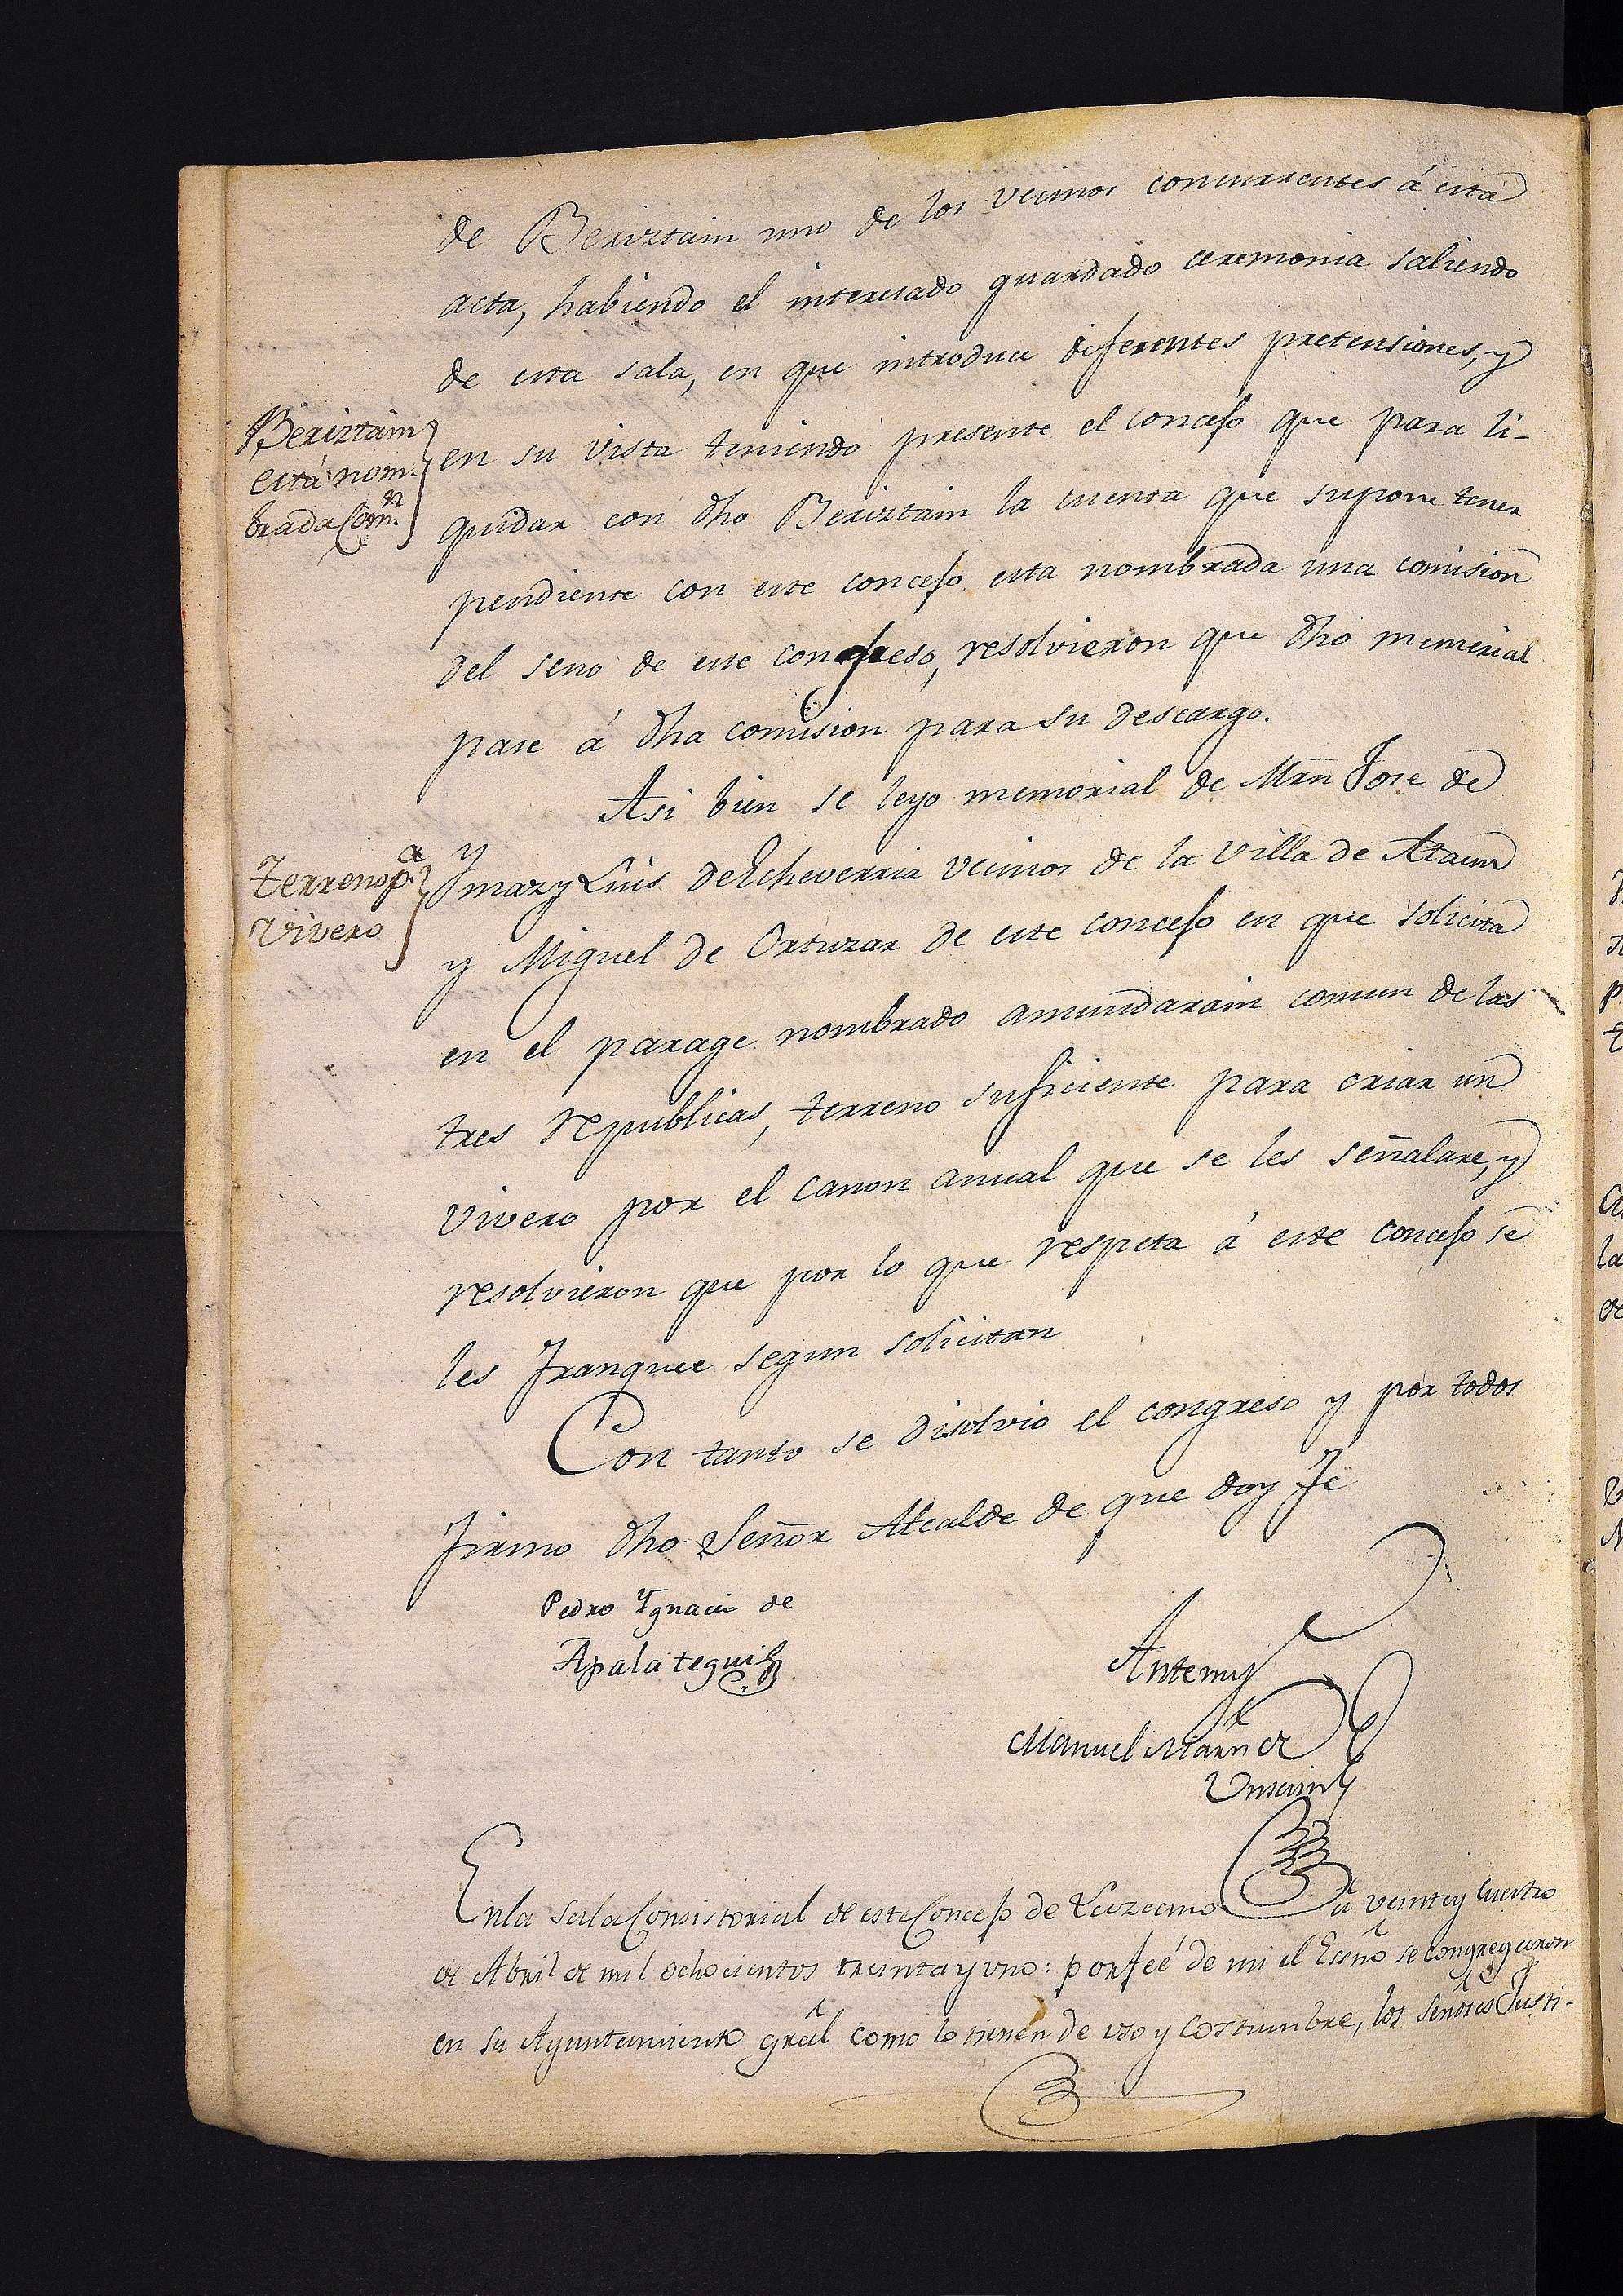 de Beriztain uno de los vecinos concurrentes á esta
acta, habiendo el interesado guardado ceremonia saliendo
de esta sala, en que introduce diferentes pretensiones, y
Beriztain
está nom-
brada Com.on
en su vista teniendo presente el concejo que para li-
quidar con dho Beriztain la cuenta que supone tener
pendiente con este concejo esta nombrada una comision
del seno de este congreso, resolvieron que dho memorial
pase á dha comision para su descargo.
Asi bien se leyo memorial de Mrn Jose de
Terreno p.a
Vivero
Ymaz y Luis de Echeverria vecinos de la Villa de Ataun
y Miguel de Orturar de este concejo en que solicita
en el parage nombrado amundarain comun de las
tres republicas, terreno suficiente para criar un
vivero por el canon anual que se les señalare, y
resolvieron que por lo que respeta á este concejo se
les franquee segun solicitan
Con tanto se disolvio el congreso y por todos
firmo dho Señor Alcalde de que doy fe
Pedro Ygnacio de
Apalategui
Antemy
Manuel Marñ de
En la Sala Consistorial de este Concejo de Lazcano á veinte y cuatro
de Abril de mil ochocientos treinta y uno: por feé de mi el Essño se congregaron
en su Ayuntamiento grâl como lo tienen de uso y costumbre, los señores Justi-